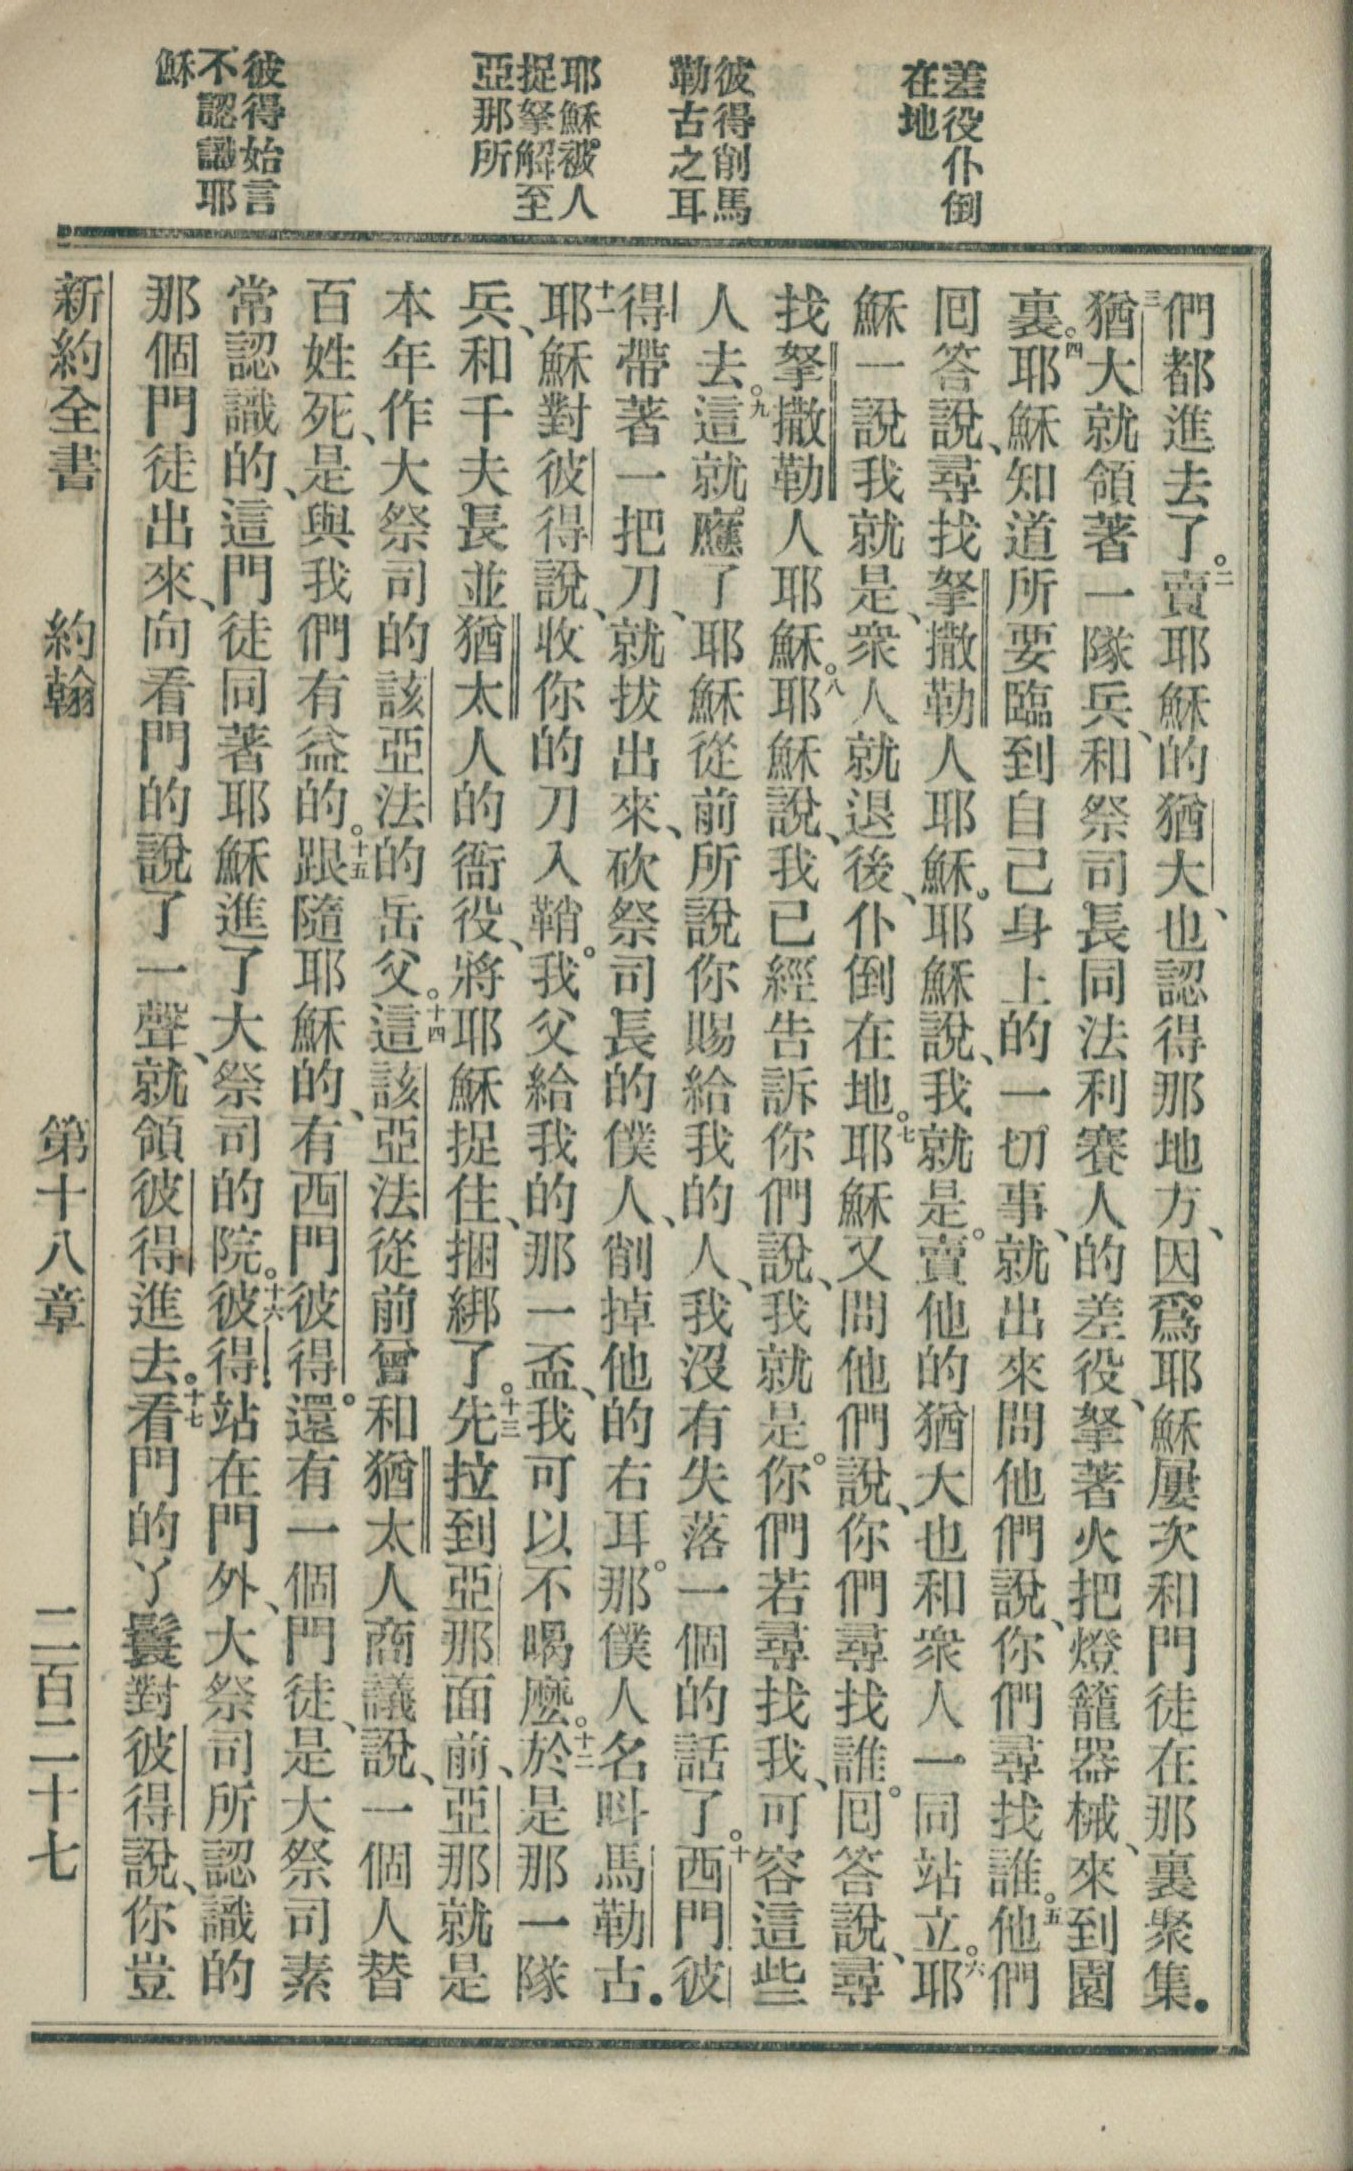 差役仆倒
在地
彼得削馬
勒古之耳
耶穌被人
捉拏解至
亞那所
彼得始言
不認識耶
穌
們都進去了。二賣耶穌的猶大、也認得那地方、因爲耶穌屢次和門徒在那裏聚集。
三猶大就領著一隊兵、和祭司長同法利賽人的差役、拏著火把燈籠器械、來到園
裏。四耶穌知道所要臨到自己身上的一切事、就出來問他們說、你們尋找誰。五他們
回答說、尋找拏撒勒人耶穌。耶穌說、我就是。賣他的猶大也和衆人一同站立。六耶
穌一說我就是、衆人就退後、仆倒在地。七耶穌又問他們說、你們尋找誰。回答說、尋
找拏撒勒人耶穌。八耶穌說、我已經告訴你們說、我就是。你們若尋找我、可容這些
人去。九這就應了耶穌從前所說你賜給我的人、我沒有失落一個的話了。十西門彼
得帶著一把刀、就拔出來、砍祭司長的僕人、削掉他的右耳。那僕人名呌馬勒古。
十一耶穌對彼得說、收你的刀入鞘。我父給我的那一盃、我可以不喝麽。十二於是那一隊
兵、和千夫長並猶太人的衙役、將耶穌捉住、捆綁了。十三先拉到亞那面前、亞那就是
本年作大祭司的該亞法的岳父。十四這該亞法從前曾和猶太人商議說、一個人替
百姓死、是與我們有益的。十五跟隨耶穌的、有西門彼得。還有一個門徒、是大祭司素
常認識的、這門徒同著耶穌進了大祭司的院。十六彼得站在門外、大祭司所認識的
那個門徒出來、向看門的說了一聲、就領彼得進去。十七看門的丫鬟對彼得說、你豈
新約全書　約翰　第十八章　二百二十七